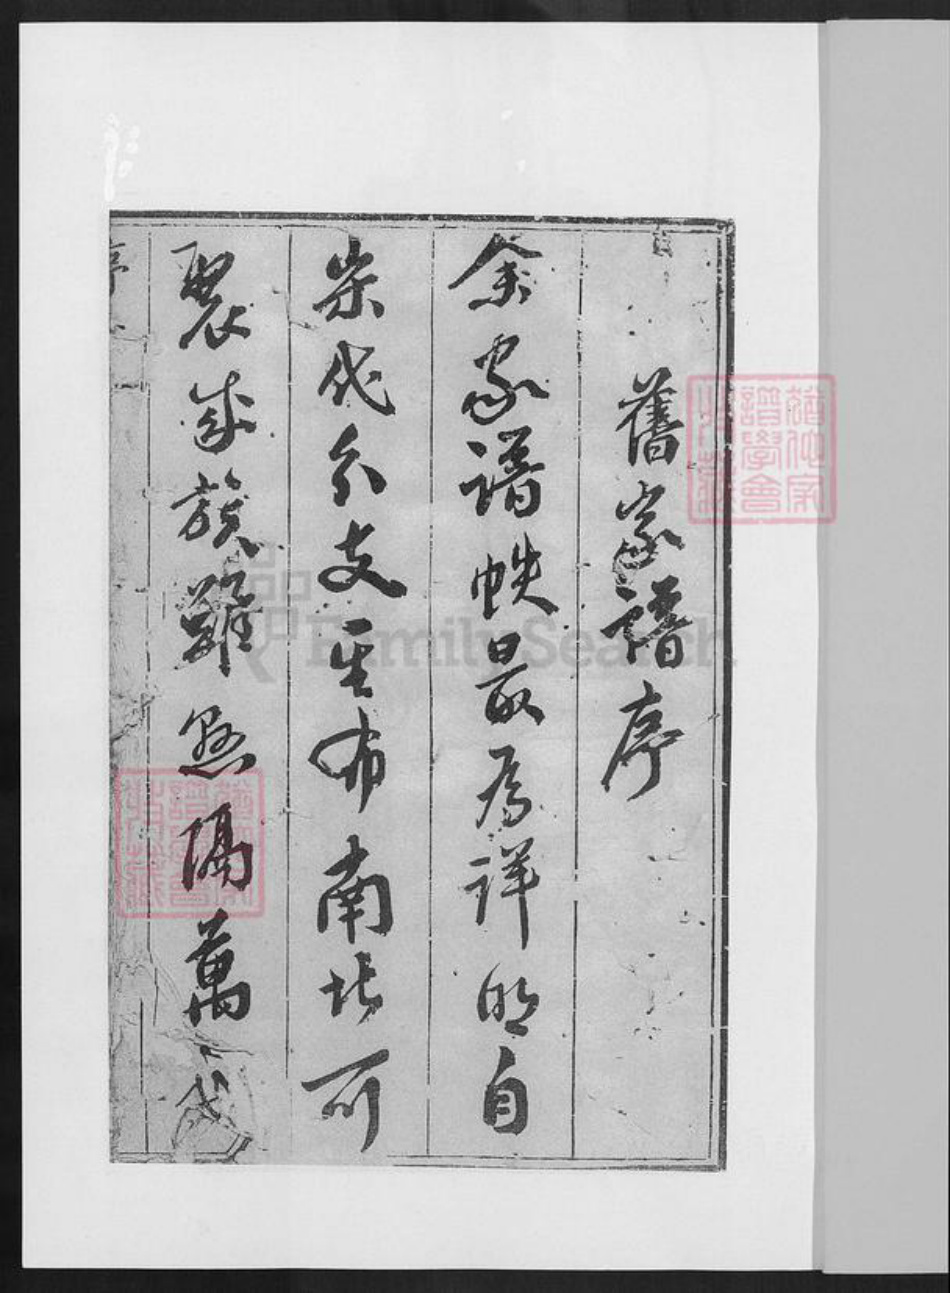 舊家譜序
余家譜帙最為詳明自
宗代分支星布南北所
聚成族雖懸隔萬
序
FamilySearch
猶他家譜學會收藏
猶他家譜學會收藏